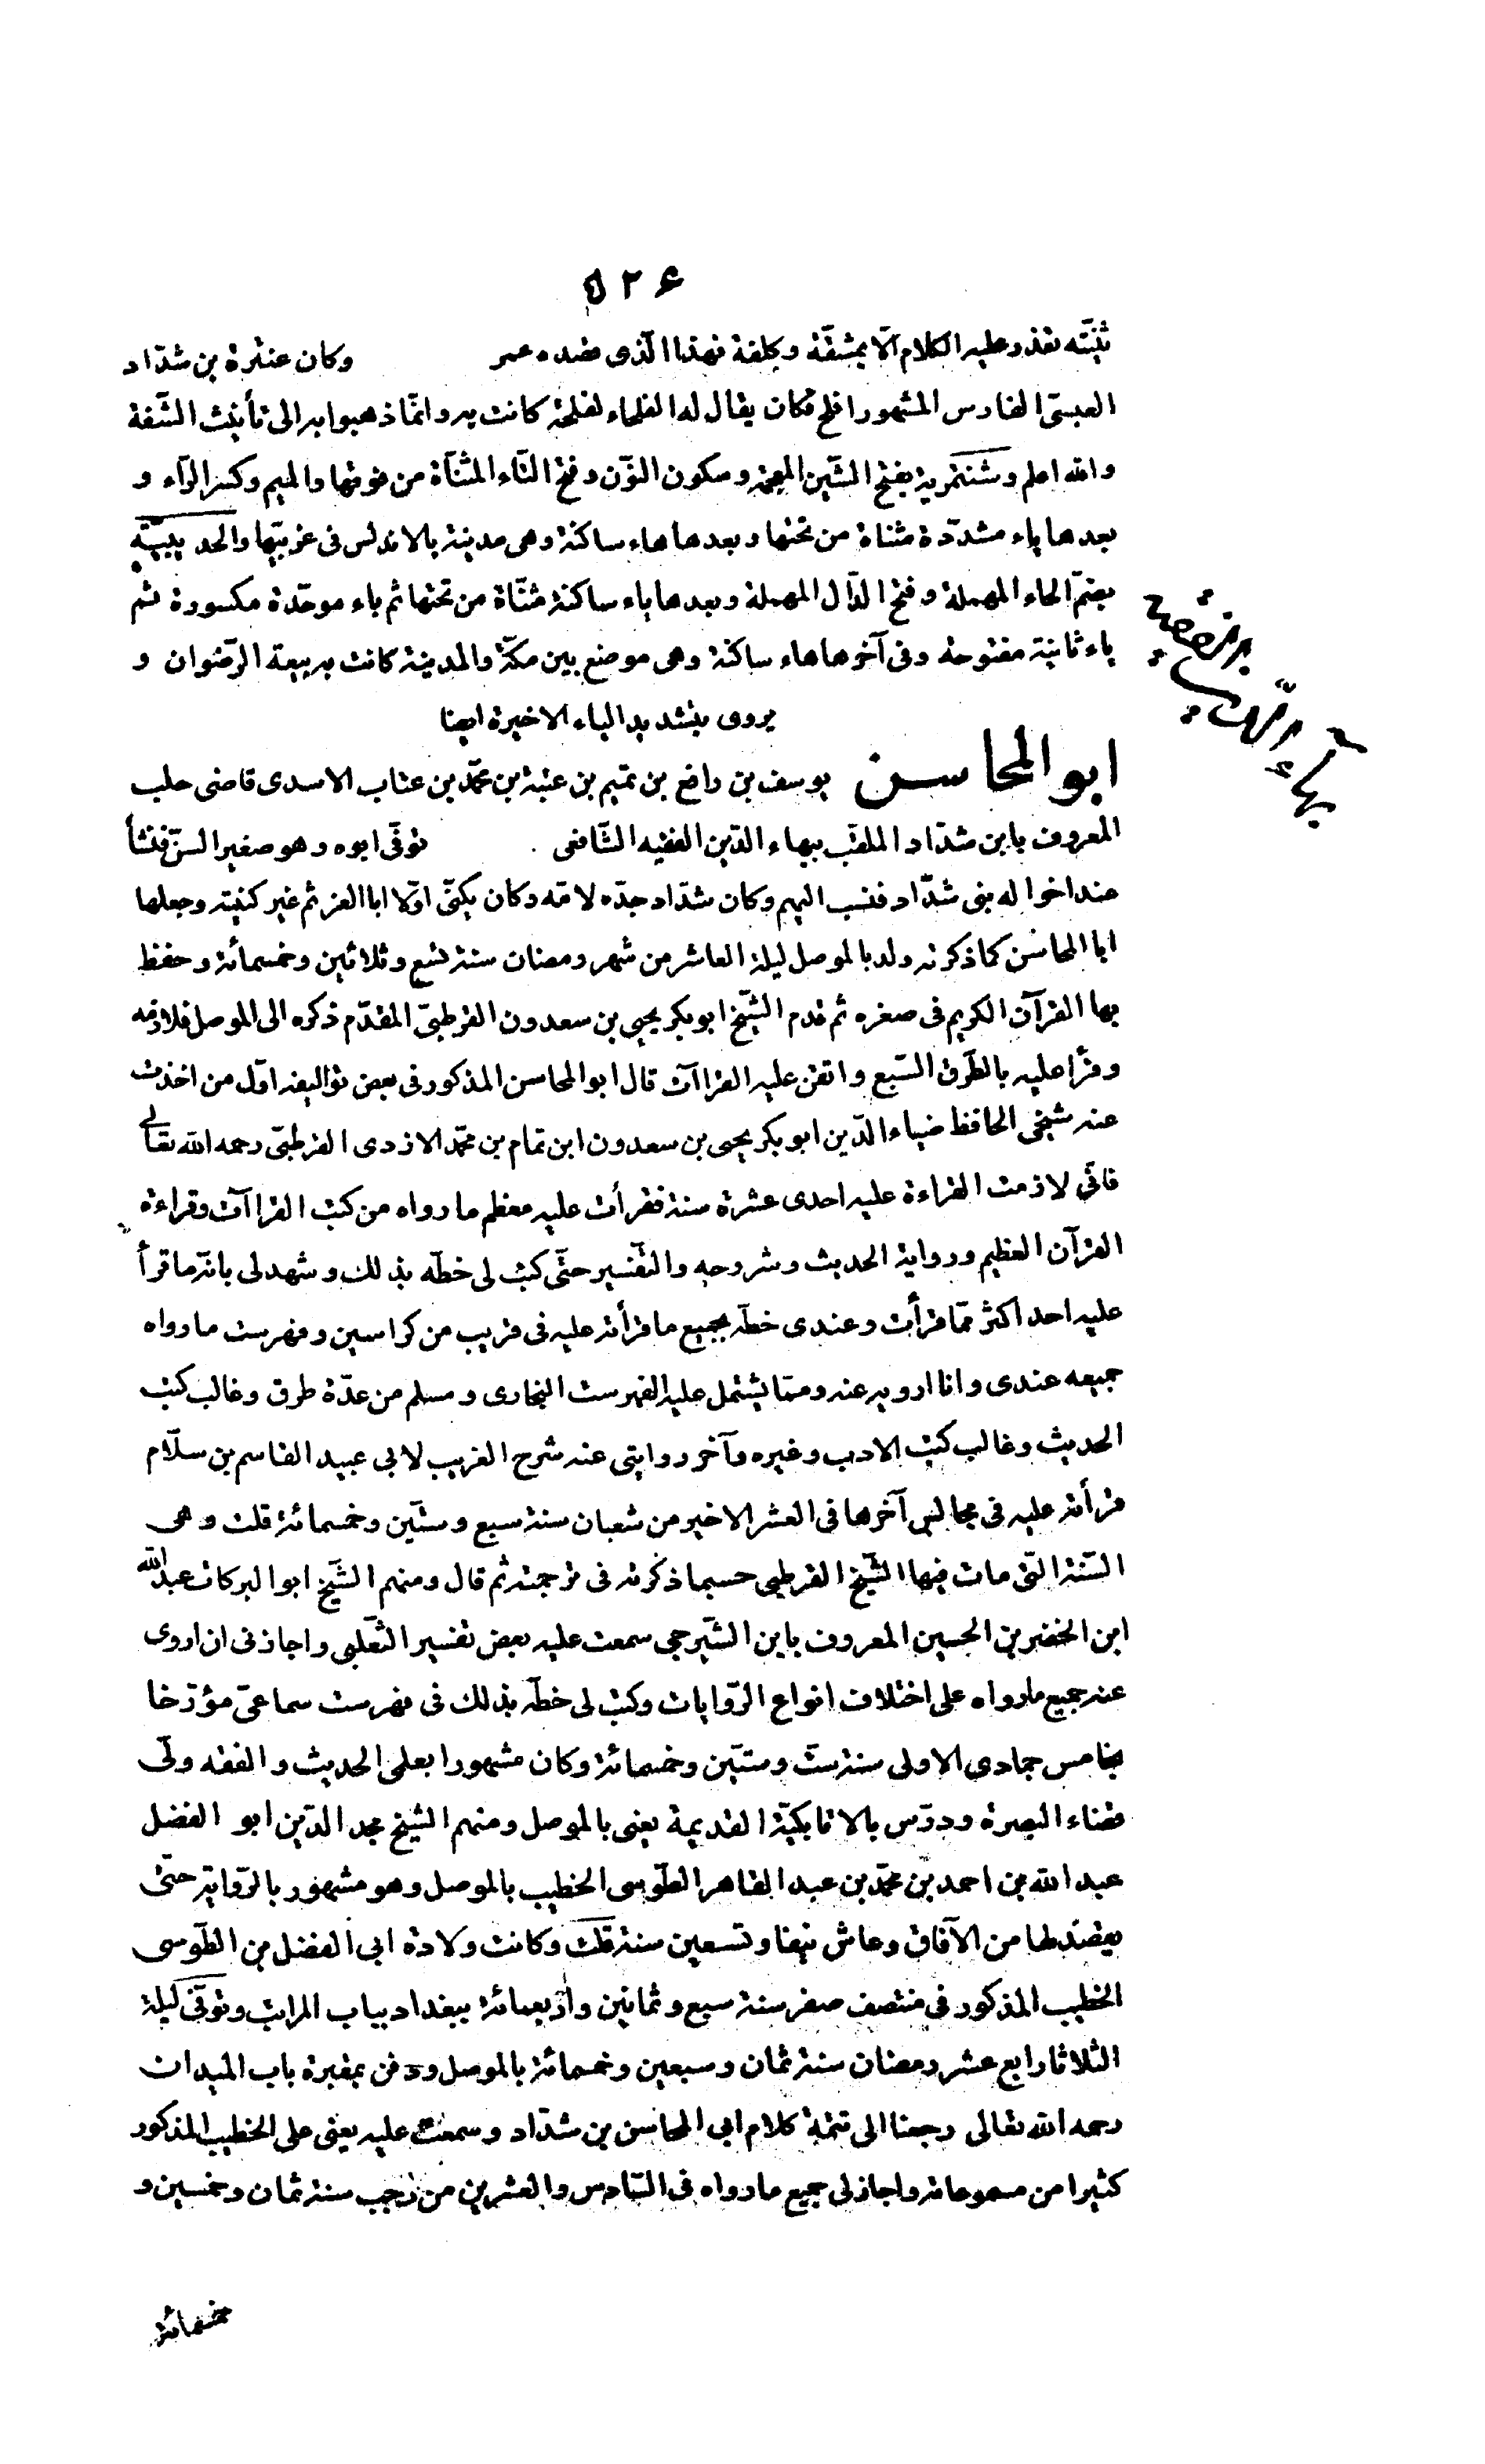 ٥٢۶
ثنيّته تعذر عليه الكلام الّا بمشقّة وكلفة فهذا الّذى قصده عمر وكان عنترة بن شدّاد
العبسىّ الفارس المشهور افلح فكان يقال له الفلحاء لفلحة كانت به وانّما ذهبوا به الى تأنيث الشّفة
والله اعلم وشنتمرية بفتح الشّين المعجمة وسكون النّون وفتح التّاء المثنّاة من فوقها والميم وكسر الرّاء و
بعدها ياء مشدّدة مثناة من تحتها وبعدها هاء ساكنة وهى مدينة بالاندلس فى غربيّها والحديبيّة
بضمّ الحاء المهملة وفتح الدّال المهملة وبعدها ياء ساكنة مثنّاة من تحتها ثم باء موحّدة مكسورة ثم
ياء ثانية مفتوحة وفى آخرها هاء ساكنة وهى موضع بين مكّة والمدينة كانت به بيعة الرّضوان و
يروى بتشديد الياء الاخيرة ايضا
ابو المحاسن يوسف بن رافع بن تميم بن عتبة بن محمّد بن عتاب الاسدى قاضى حلب
المعروف بابن شدّاد الملقّب ببهاء الدّين الفقيه الشّافعى توفّى ابوه وهو صغير السنّ فنشأ
عند اخواله بنى شدّاد فنسب اليهم وكان شدّاد جدّه لامّه وكان يكنّى اوّلا ابا العز ثم غير كنيته وجعلها
ابا المحاسن كما ذكرته ولد بالموصل ليلة العاشر من شهر رمضان سنة تسع وثلاثين وخمسمائة وحفظ
بها القرآن الكريم فى صغره ثم قدم الشّيخ ابو بكر يحيى بن سعدون القرطبىّ المقدّم ذكره الى الموصل فلازمه
وقرأ عليه بالطّرق السّبع واتقن عليه القراآت قال ابو المحاسن المذكور فى بعض تواليفه اوّل من اخذت
عنه شيخى الحافظ ضياء الدّين ابو بكر يحيى بن سعدون ابن تمام بن محمّد الازدى القرطبىّ رحمه الله تعالى
فانّى لازمت القراءة عليه احدى عشرة سنة فقرأت عليه معظم ما رواه من كتب القراآت وقراءة
القرآن العظيم ورواية الحديث وشروحه والتّفسير حتّى كتب لى خطّه بذلك وشهد لى بانّه ما قرأ
عليه احد اكثر ممّا قرأت وعندى خطّه بجميع ما قرأته عليه فى قريب من كراسين وفهرست ما رواه
جميعه عندى وانا ارويه عنه وممّا يشتمل عليه الفهرست البخارى ومسلم من عدّة طرق وغالب كتب
الحديث وغالب كتب الادب وغيره وآخر روايتى عنه شرح الغريب لابى عبيد القاسم بن سلّام
قرأته عليه فى مجالس آخرها فى العشر الاخير من شعبان سنة سبع وستّين وخمسمائة قلت وهى
السّنة الّتى مات فيها الشّيخ القرطبى حسبما ذكرته فى ترجمته ثم قال ومنهم الشّيخ ابو البركات عبد الله
ابن الخضر بن الحسين المعروف بابن الشّيرجى سمعت عليه بعض تفسير الثّعلبى واجازنى ان اروى
عنه جميع ما رواه على اختلاف انواع الرّوايات وكتب لى خطّه بذلك فى فهرست سماعىّ مؤرّخا
بخامس جمادى الاولى سنة ستّ وستّين وخمسمائة وكان مشهورا بعلمى الحديث والفقه ولّى
قضاء البصرة ودرّس بالاتابكيّة القديمة يعنى بالموصل ومنهم الشّيخ مجد الدّين ابو الفضل
عبد الله بن احمد بن محمّد بن عبد القاهر الطّوسى الخطيب بالموصل وهو مشهور بالرّواية حتّى
يقصد لها من الآفاق وعاش نيفا وتسعين سنة قلت وكانت ولادة ابى الفضل بن الطّوسى
الخطيب المذكور فى منتصف صفر سنة سبع وثمانين واربعمائة ببغداد بباب المراتب وتوفّى ليلة
الثلاثا رابع عشر رمضان سنة ثمان وسبعين وخمسمائة بالموصل ودفن بمقبرة باب الميدان
رحمه الله تعالى رجعنا الى تتمة كلام ابى المحاسن بن شدّاد وسمعت عليه يعنى على الخطيب المذكور
كثيرا من مسموعاته واجاز لى جميع ما رواه فى السّادس والعشرين من رجب سنة ثمان وخمسين و
خمسمائة